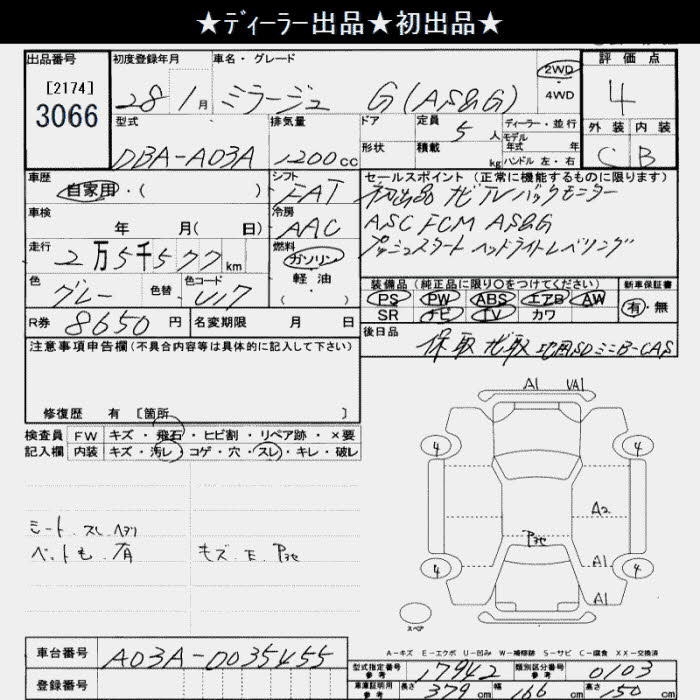 ★ディーラー出品★初出品★
出品番号
[2174]
3066
初度登録年月
28 1月
車名・グレード
ミラージュ G(AS&G)
2WD
・
4WD
評価点
4
外装 内装
C B
型式
DBA-A03A
排気量
1200cc
ドア
形状
定員
5人
積載
kg
ディーラー・並行
モデル
年式 年
ハンドル 左・右
車歴
自家用・( )
シフト
FAT
セールスポイント(正常に機能するものに限ります)
初出品 ナビTVバックモニター
ASC FCM AS&G
プッシュスタート ヘッドライトレベリング
車検
年 月( 日)
冷房
AAC
走行
2万5千577km
燃料
ガソリン
・
軽油
( )
色
グレー
色替
色コード
U17
装備品(純正品に限り○をつけてください)
PS PW ABS エアB AW
SR ナビ TV カワ
新車保証書
有・無
R券
8650円
名変期限 月 日
後日品
保取 ナビ取 地図SD ミニB-CAS
注意事項申告欄(不具合内容等は具体的に記入して下さい)
修復歴 有 〔箇所 〕
検査員
記入欄
FW キズ・飛石・ヒビ割・リペア跡・×要
内装 キズ・汚レ・コゲ・穴・スレ・キレ・破レ
シート、スレ、ヘタリ
ペットも、有
キズ、E、Pヨゴレ
A1 VA1
4 4
A2
A1
4 4
A1
スペア
A-キズ E-エクボ U-凹み W-補修跡 S-サビ C-腐食 XX-交換済
車台番号
A03A-0035455
登録番号
型式指定番号
参考
17942
類別区分番号
参考
0103
車庫証明用
参考
長さ 379cm 幅 166cm 高さ 150cm